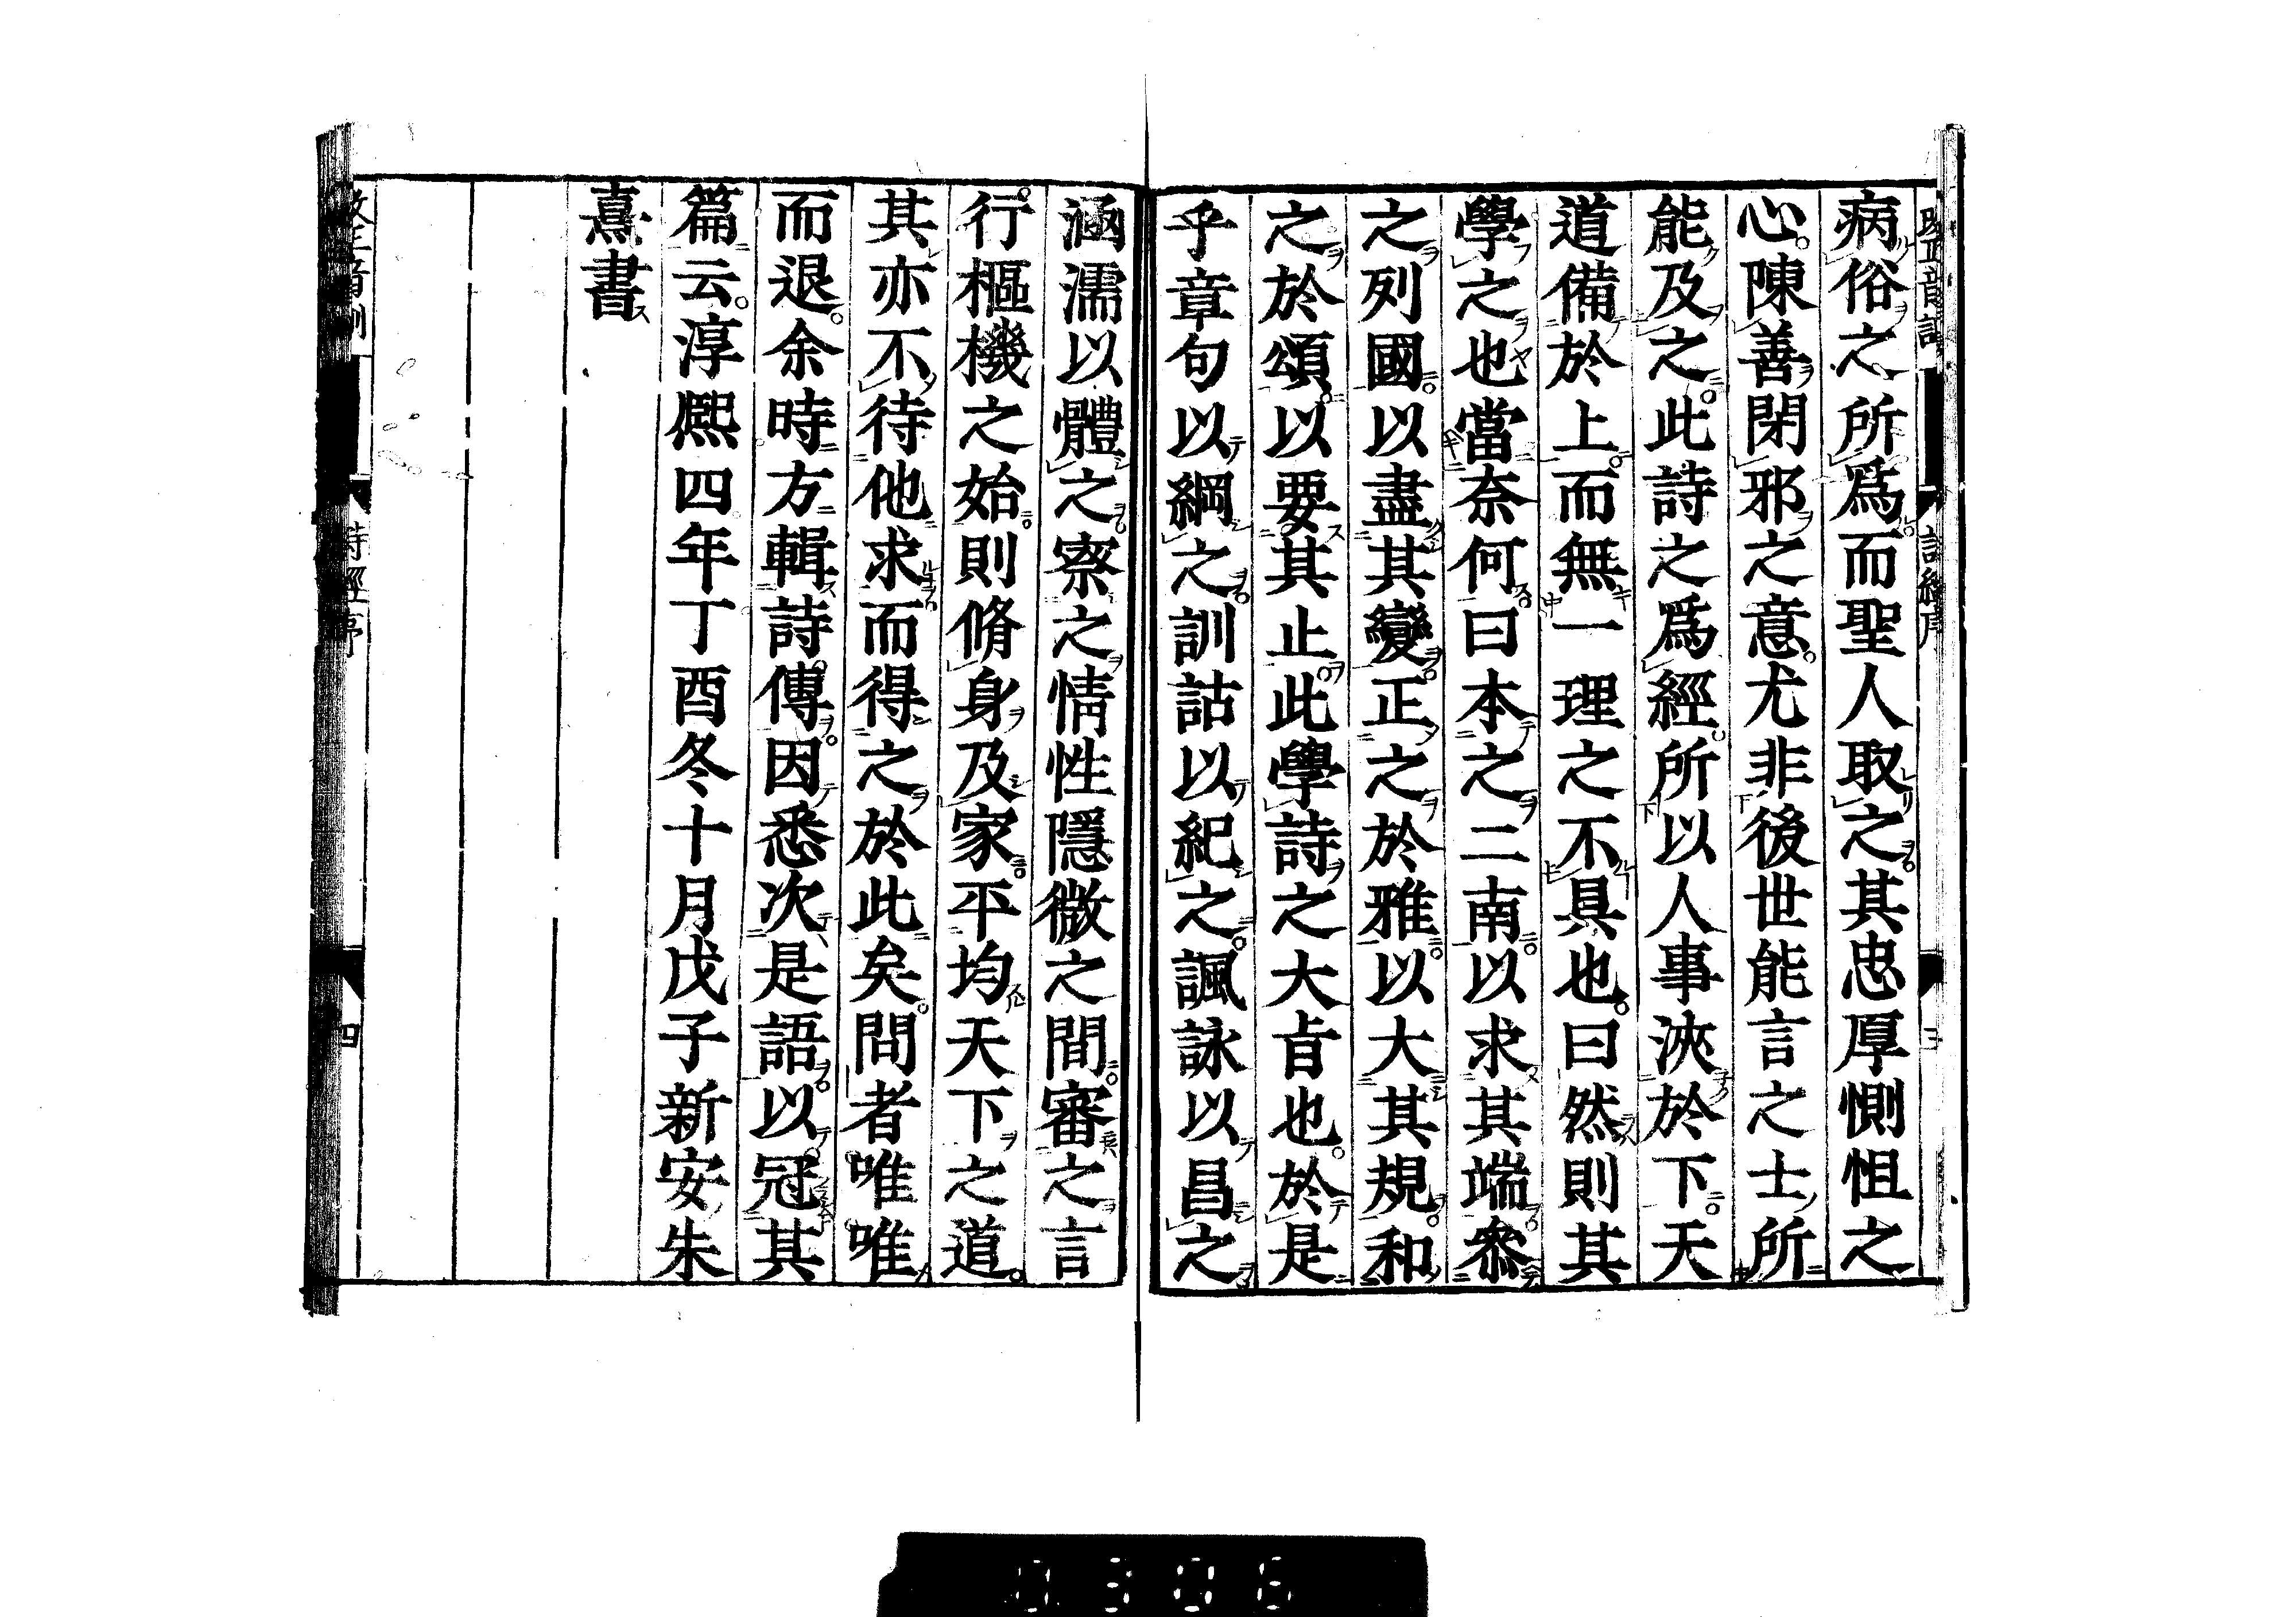 病俗之所爲而聖人取之其忠厚惻怛之
心陳善閉邪之意尤非後世能言之士所
能及之此詩之爲經所以人事浹於下天
道備於上而無一理之不具也曰然則其
學之也當奈何曰本之二南以求其端叅
之列國以盡其變正之於雅以大其規和
之於頌以要其止此學詩之大㫖也於是
乎章句以綱之訓詁以紀之諷詠以昌之
涵濡以體之察之情性隱微之間審之言
行樞機之始則脩身及家平均天下之道
其亦不待他求而得之於此矣問者唯唯
而退余時方輯詩傳因悉次是語以冠其
篇云淳熈四年丁酉冬十月戊子新安朱
熹書
詩經序
四
0306